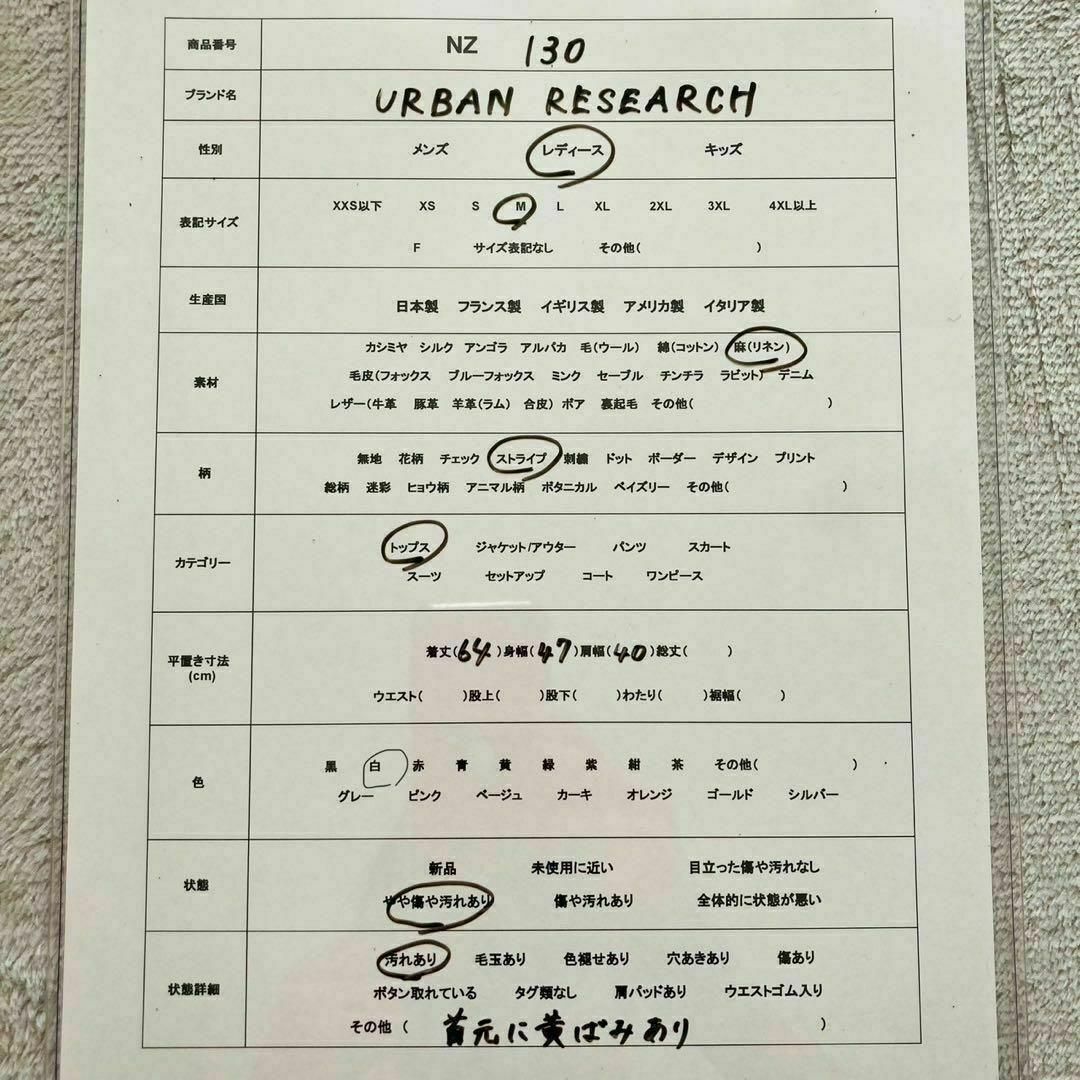 商品番号 NZ 130
ブランド名 URBAN RESEARCH
性別 メンズ レディース キッズ
表記サイズ XXS以下 XS S M L XL 2XL 3XL 4XL以上
F サイズ表記なし その他( )
生産国 日本製 フランス製 イギリス製 アメリカ製 イタリア製
素材 カシミヤ シルク アンゴラ アルパカ 毛(ウール) 綿(コットン) 麻(リネン)
毛皮(フォックス ブルーフォックス ミンク セーブル チンチラ ラビット) デニム
レザー(牛革 豚革 羊革(ラム) 合皮) ボア 裏起毛 その他( )
柄 無地 花柄 チェック ストライプ 刺繍 ドット ボーダー デザイン プリント
総柄 迷彩 ヒョウ柄 アニマル柄 ボタニカル ペイズリー その他( )
カテゴリー トップス ジャケット/アウター パンツ スカート
スーツ セットアップ コート ワンピース
平置き寸法 着丈(64)身幅(47)肩幅(40)総丈( )
(cm) ウエスト( )股上( )股下( )わたり( )裾幅( )
色 黒 白 赤 青 黄 緑 紫 紺 茶 その他( )
グレー ピンク ベージュ カーキ オレンジ ゴールド シルバー
状態 新品 未使用に近い 目立った傷や汚れなし
やや傷や汚れあり 傷や汚れあり 全体的に状態が悪い
状態詳細 汚れあり 毛玉あり 色褪せあり 穴あきあり 傷あり
ボタン取れている タグ類なし 肩パッドあり ウエストゴム入り
その他 ( 首元に黄ばみあり )